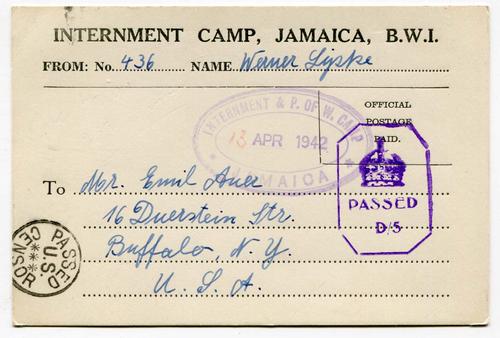 INTERNMENT CAMP, JAMAICA, B.W.I.
FROM: No. 436 NAME Werner Lipke
OFFICIAL
POSTAGE
PAID.
INTERNMENT & P. OF W. CAMP
13 APR 1942
JAMAICA
PASSED
D/5
To Mr. Emil Auer
16 Duerstein Str.
Buffalo, N. Y.
U. S. A.
PASSED
U.S.
CENSOR